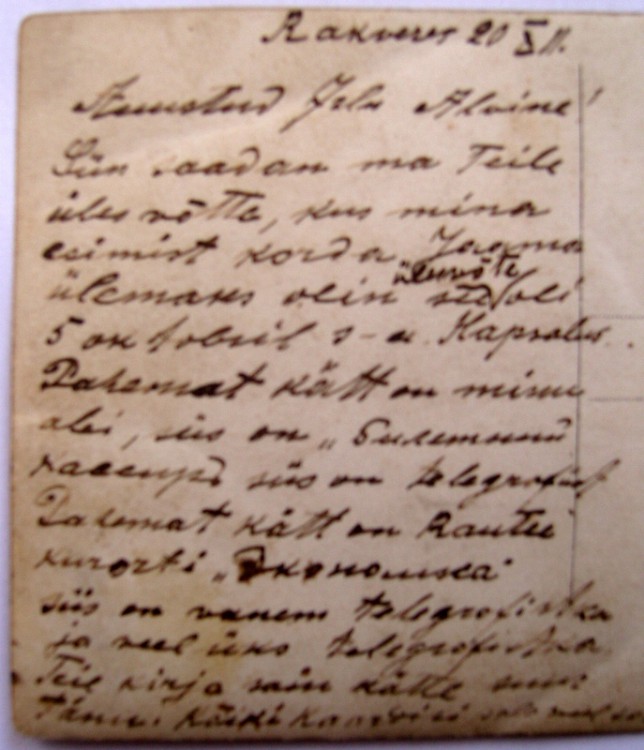 Rakveres 20 X 11.
Armstud Alvine!
Siin saadan ma Teile
üles võtte, kus mina
esimist korda Jaama
ülemaks olin ülesvõte oli
5 oktobril s-a. Kapsalus.
Pahemat kätt on minu
abi, siis on „Билетный
кассиръ siis on telegrafist
Pahemat kätt on Rautee
kurorti „Экономка"
siis on vanem telegrafistka
ja veel üks telegrafistka
Teie kirja sain kätte suur
Tänu.